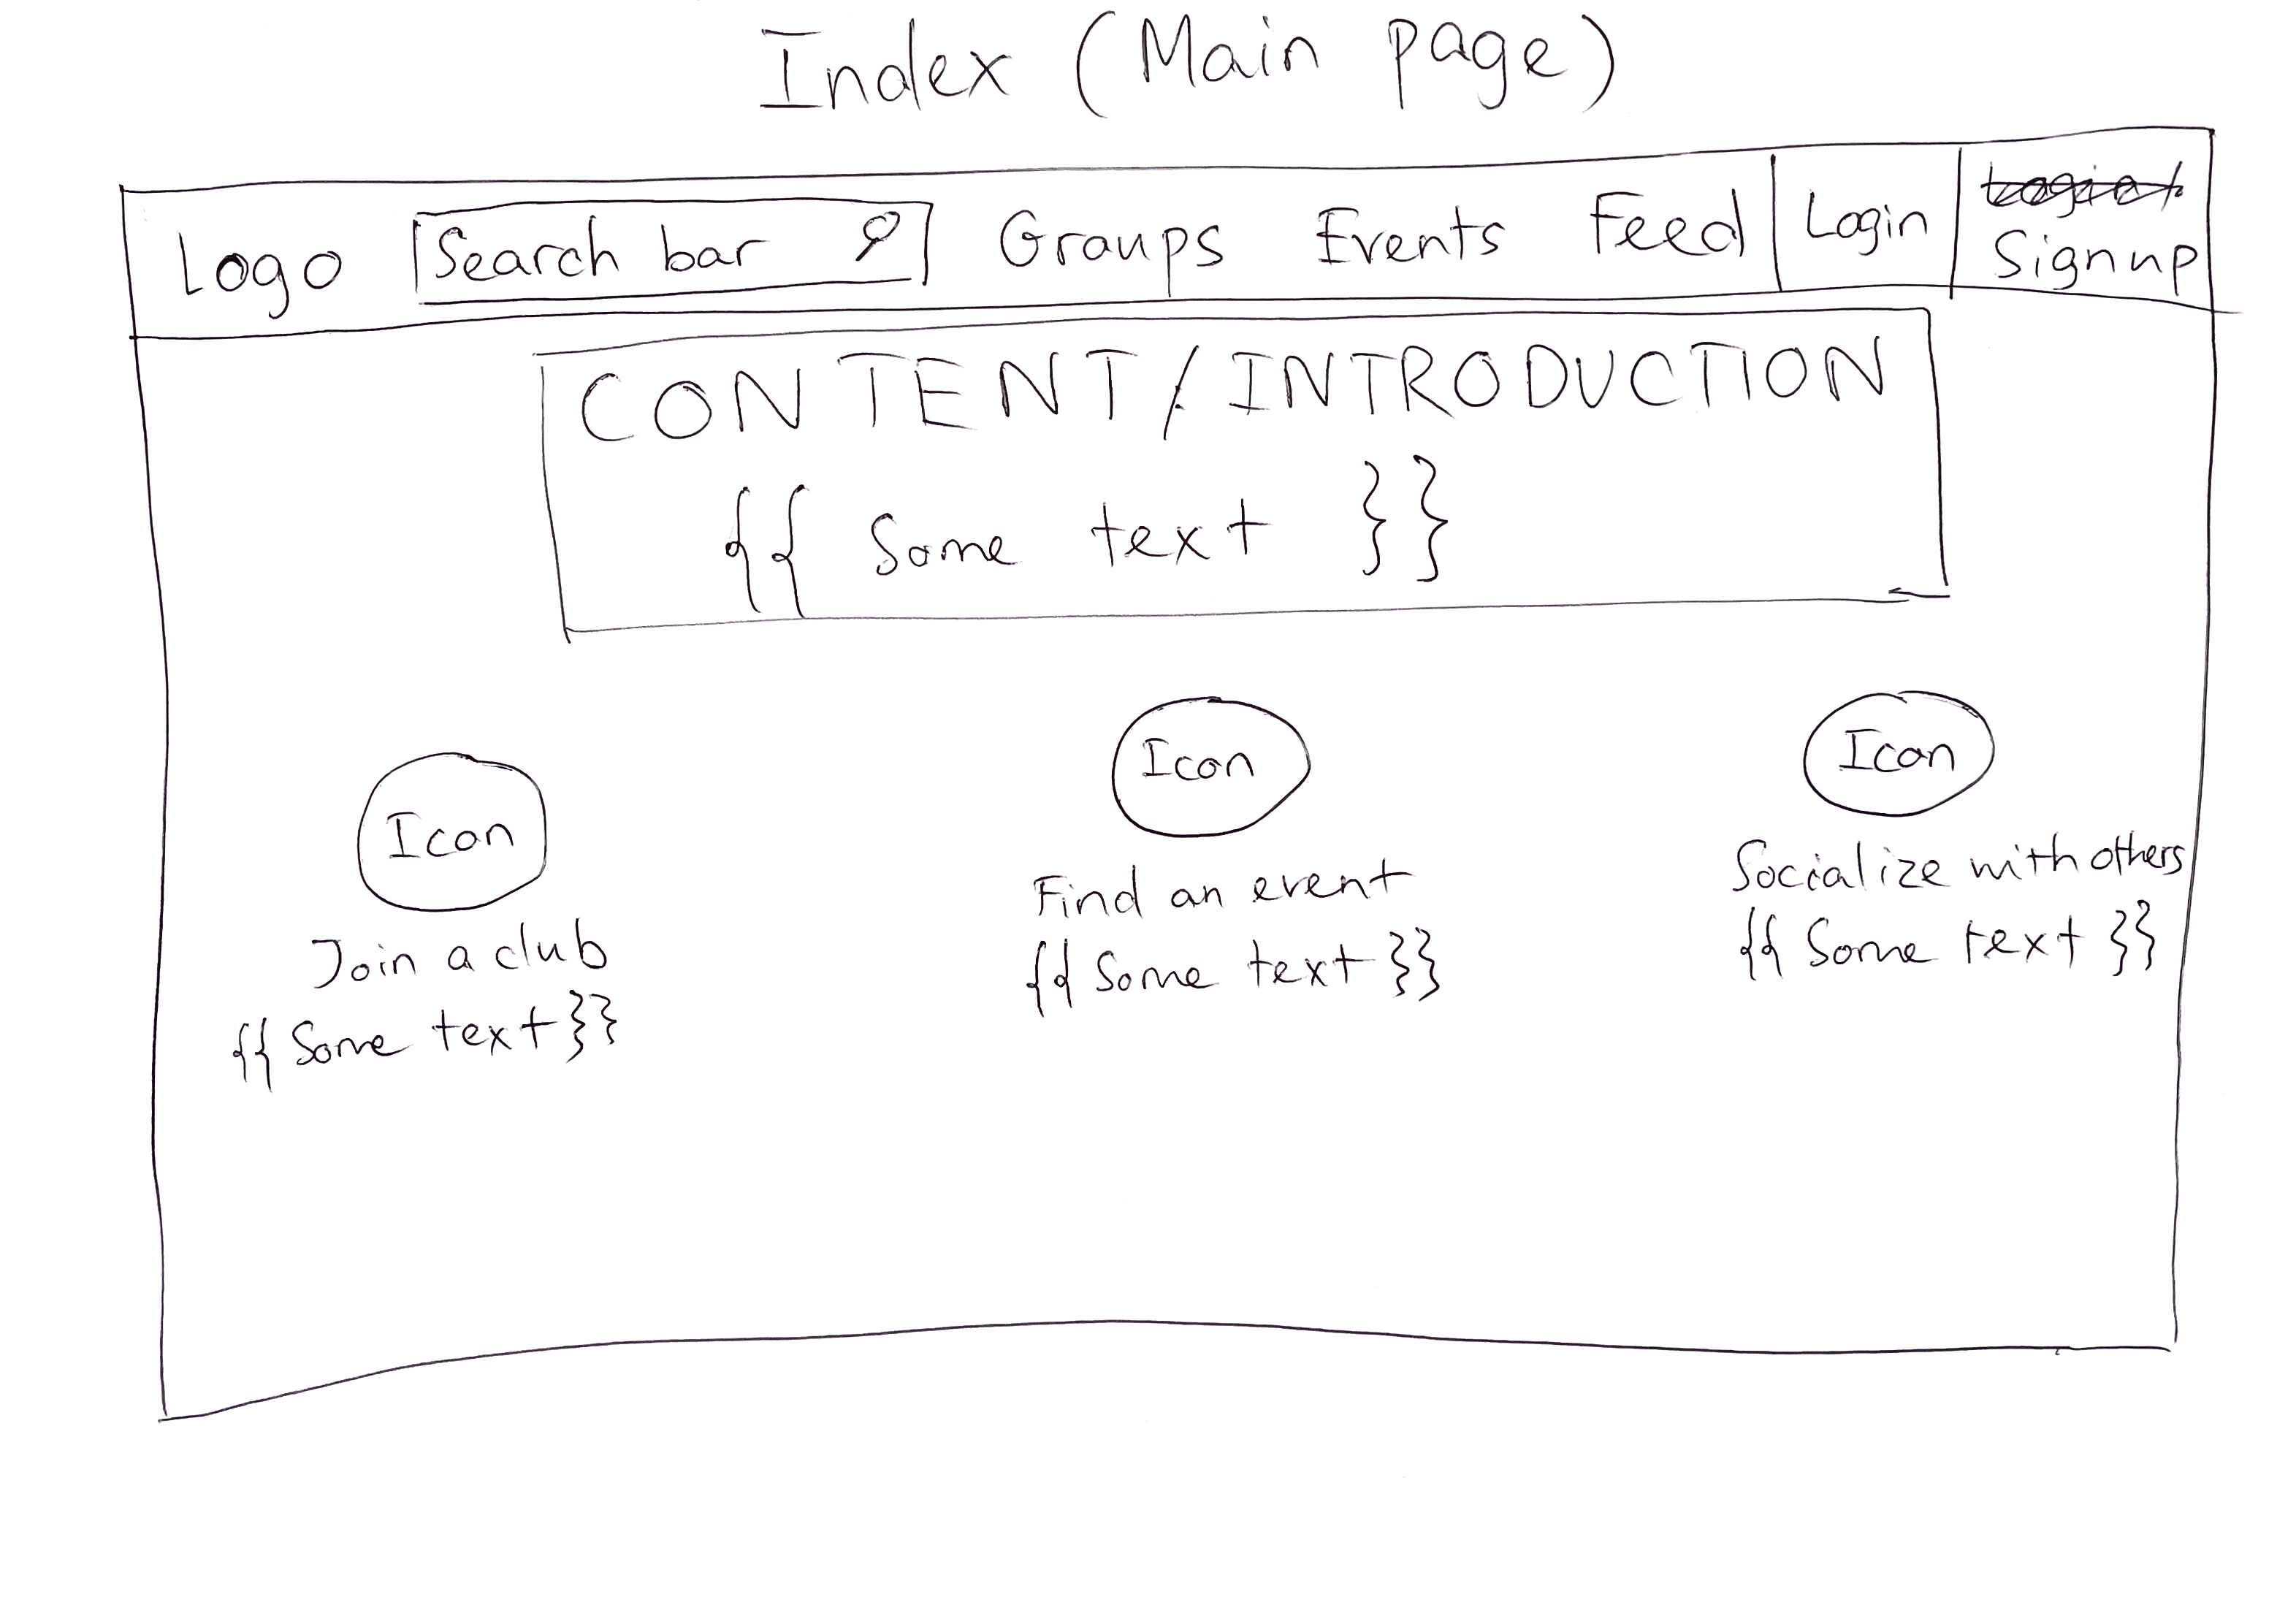 Index (Main page)
Logo Search bar Groups Events Feed Login Signup
CONTENT/INTRODUCTION
{{ Some text }}
Icon
Join a club
{{ Some text }}
Icon
Find an event
{{ Some text }}
Icon
Socialize with others
{{ Some text }}